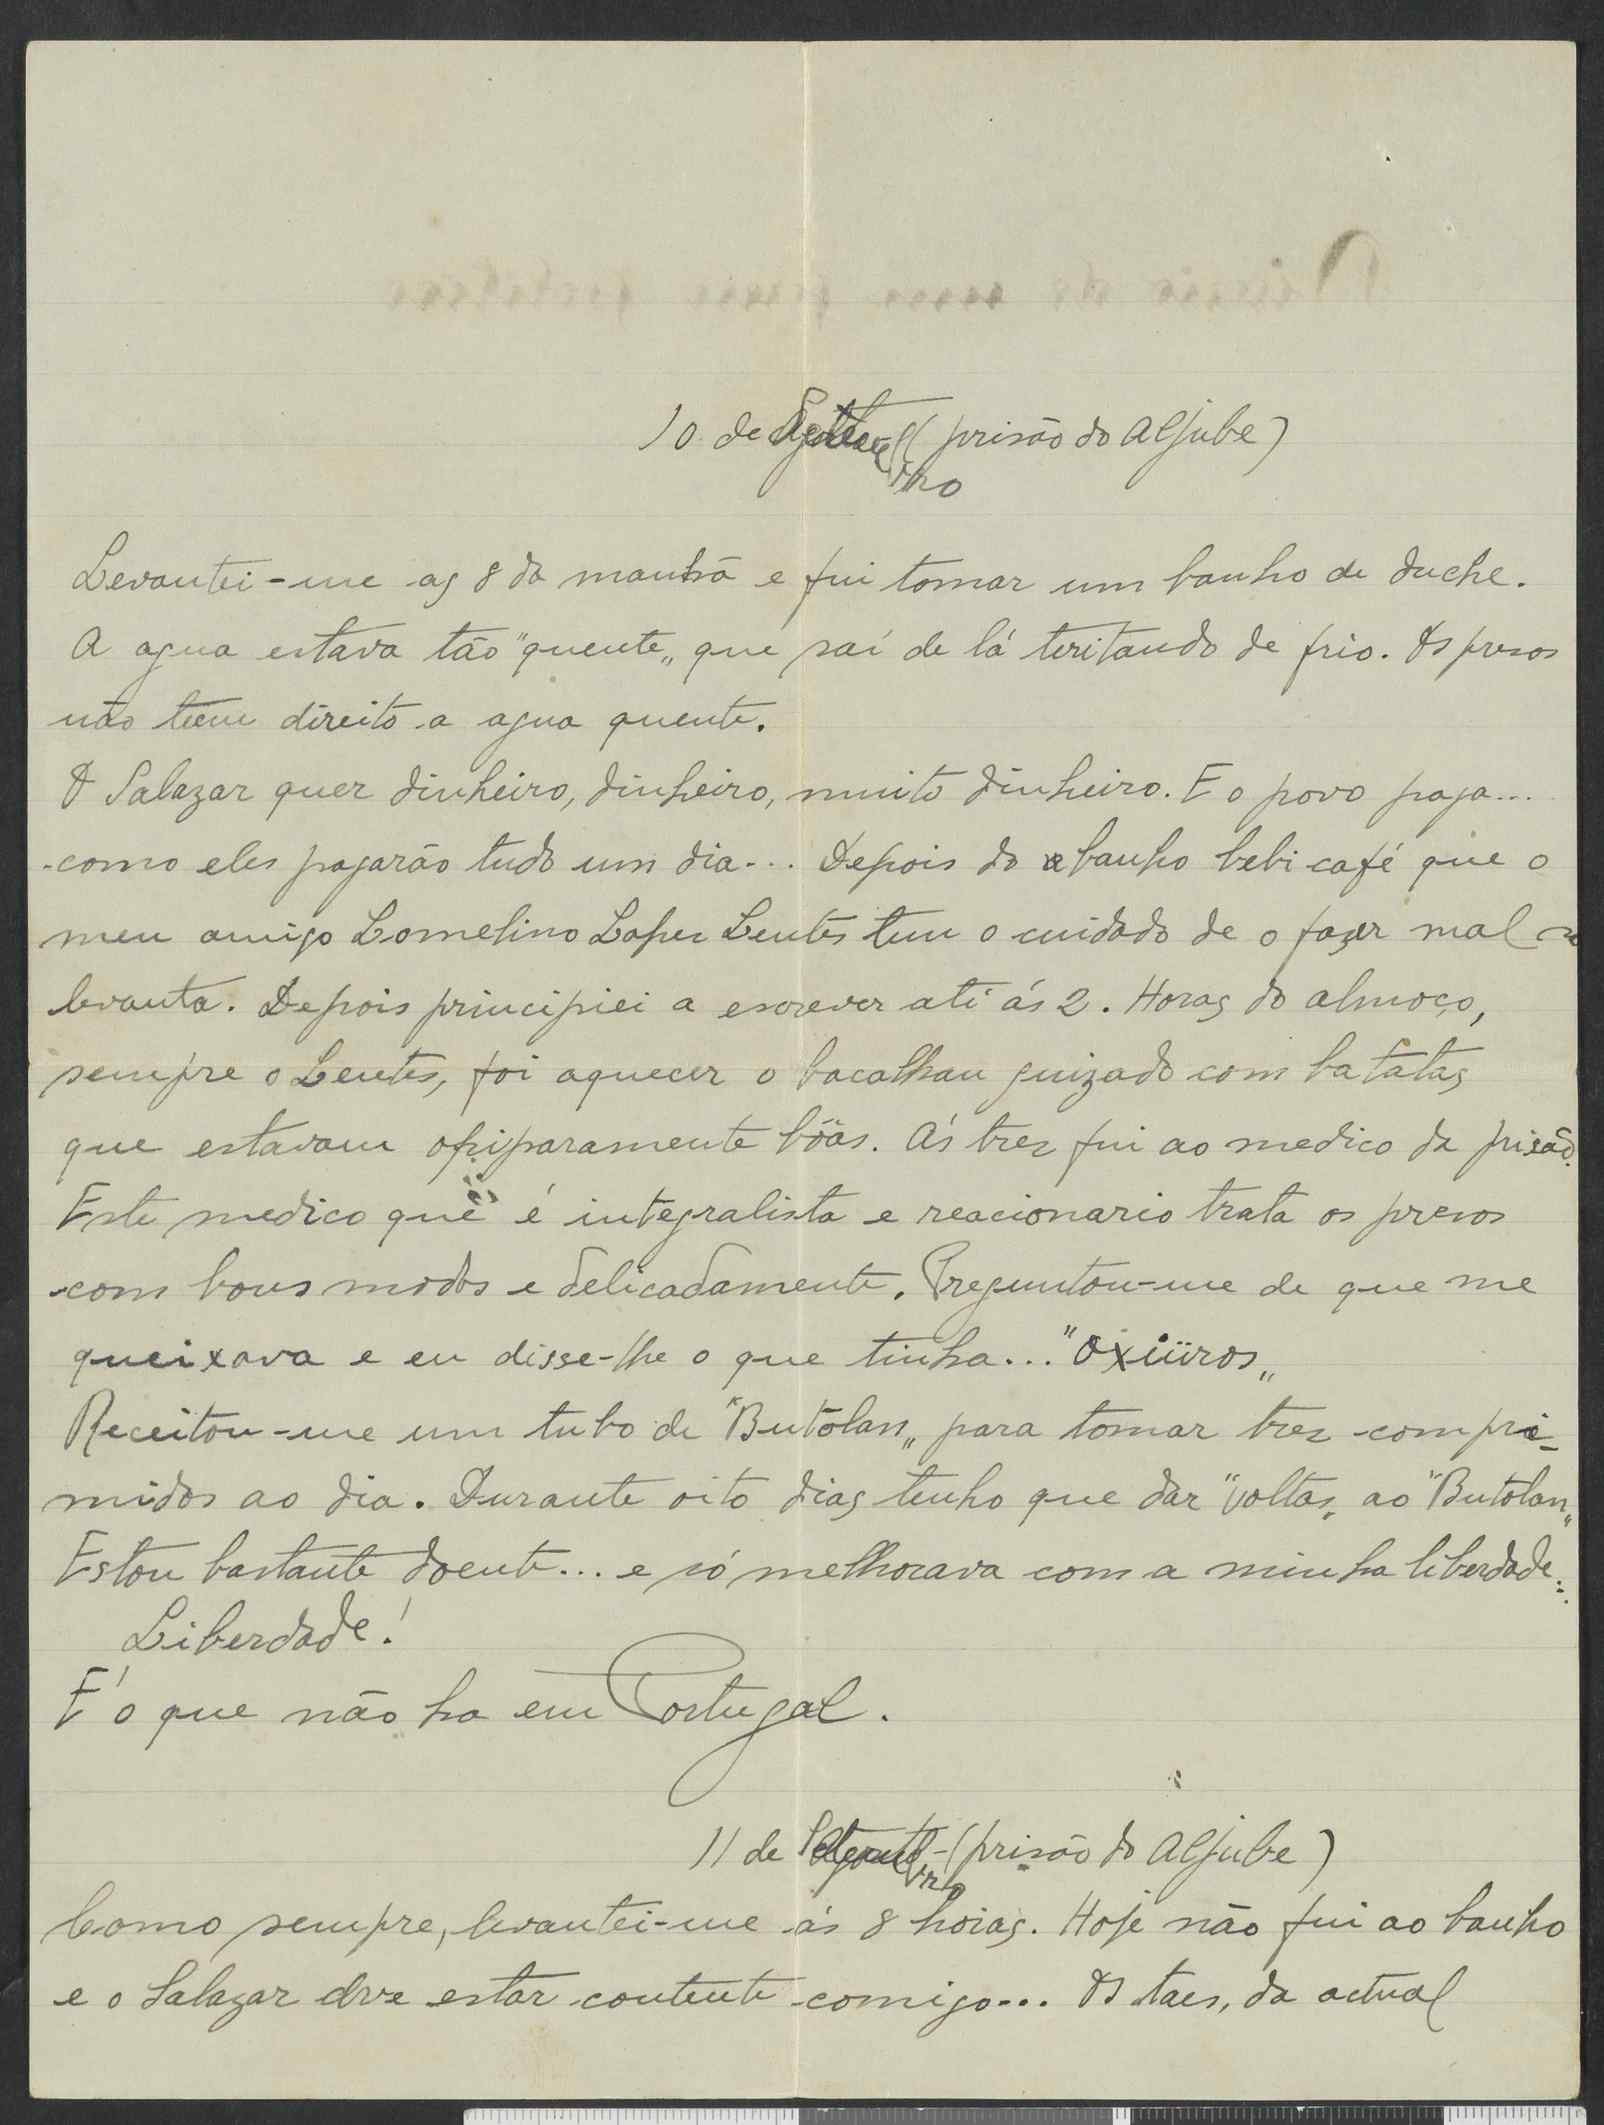 10 de (prisão do Aljube)
Levantei-me as 8 da manhã e fui tomar um banho de duche.
A agua estava tão "quente„ que saí de lá teritando de frio. Os presos
não têem direito a agua quente.
O Salazar quer dinheiro, dinheiro, muito dinheiro. E o povo paga...
como eles pagarão tudo um dia... Depois do banho bebi café que o
meu amigo Lomelino Lopes Lentes tem o cuidado de o fazer mal se
levanta. Depois principiei a escrever até ás 2. Horas do almoço,
sempre o Lentes, foi aquecer o bacalhau guizado com batatas
que estavam opiparamente bôas. Ás trez fui ao medico da prisão.
Este medico que é integralista e reacionario trata os presos
com bons modos e delicadamente. Preguntou-me de que me
queixava e eu disse-lhe o que tinha... "Oxiüros„
Receitou-me um tubo de "Butolan„ para tomar trez compri-
midos ao dia. Durante oito dias tenho que dar "voltas„ ao "Butolan„
Estou bastante doente... e só melhorava com a minha liberdade...
Liberdade!
E' o que não ha em Portugal.
11 de - (prisão do Aljube)
Como sempre, levantei-me ás 8 horas. Hoje não fui ao banho
e o Salazar deve estar contente comigo... Os taes, da actual